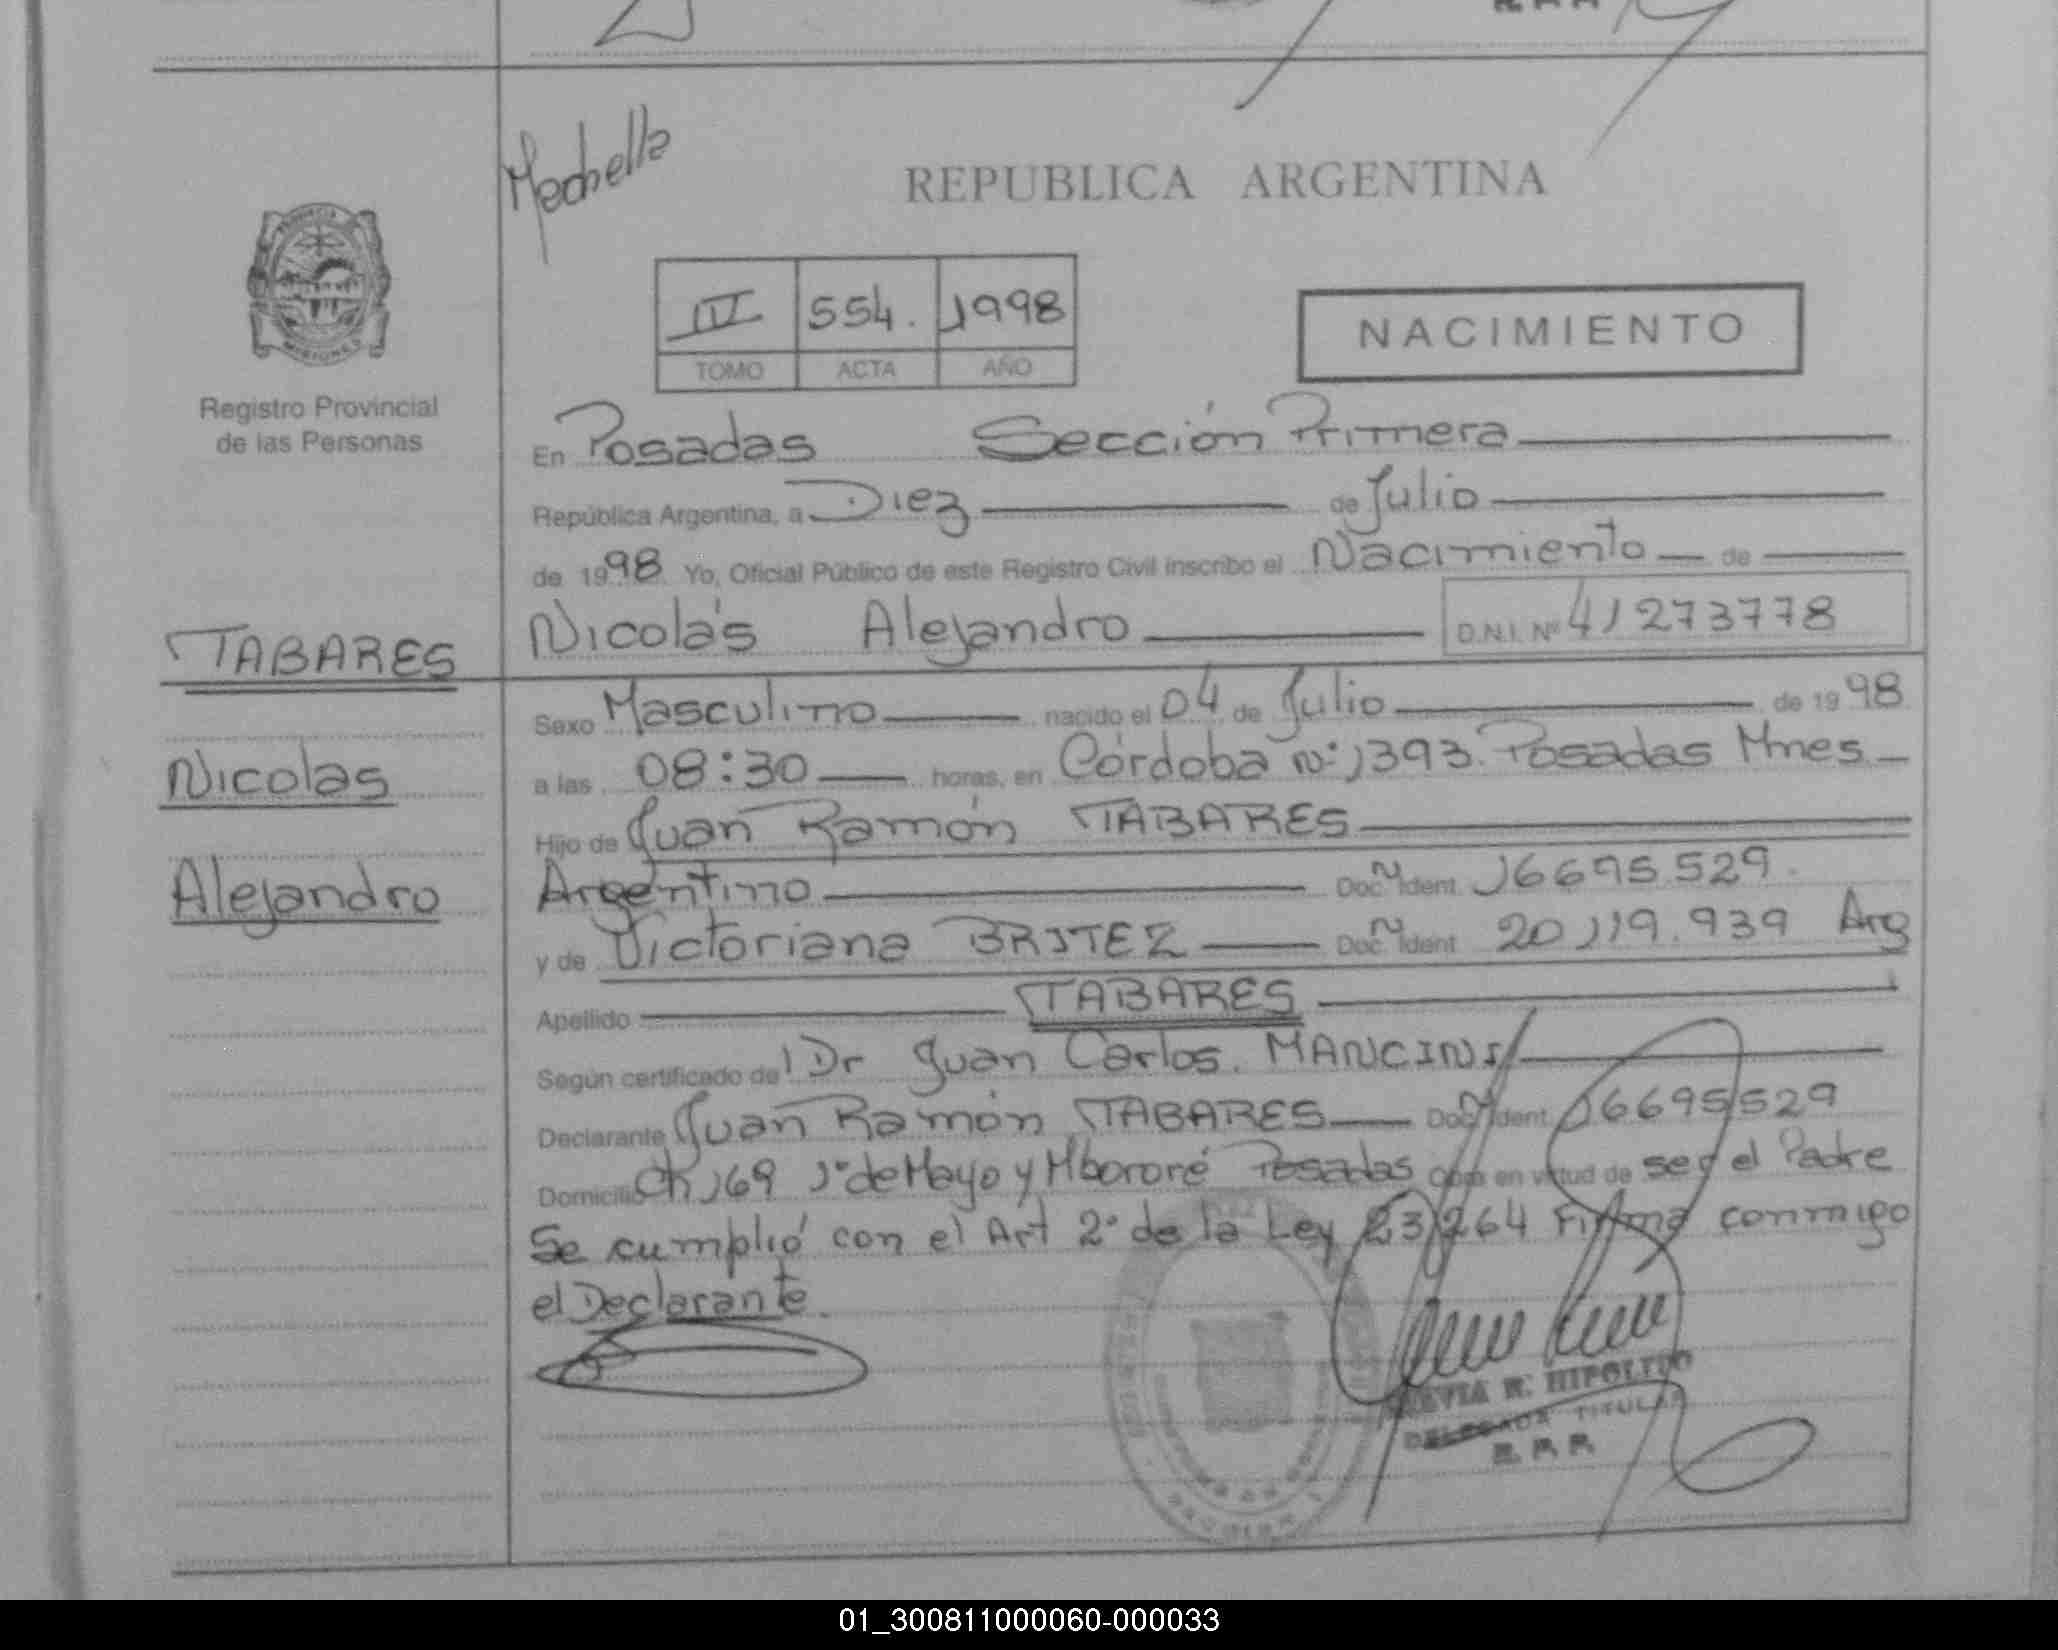 Mechella
REPUBLICA ARGENTINA
PROVINCIA
MISIONES
Registro Provincial
de las Personas
III 554. 1998
TOMO ACTA AÑO
NACIMIENTO
En Posadas Sección Primera
República Argentina, a Diez de Julio
de 1998 Yo, Oficial Público de este Registro Civil inscribo el Nacimiento de
TABARES
Nicolás Alejandro D.N.I. Nº 41273778
Sexo Masculino nacido el 04 de Julio de 1998
Nicolas
a las 08:30 horas, en Córdoba Nº 1393. Posadas Mnes
Hijo de Juan Ramón TABARES
Alejandro
Argentino Doc. Ident. 16695529.
y de Victoriana BRITEZ Doc. Ident. 20119.939 Arg
Apellido TABARES
Según certificado del Dr Juan Carlos. MANCINI
Declarante Juan Ramón TABARES Doc. Ident. 16695529
Domicilio Ch 169 1º de Mayo y Mbororé Posadas Obra en virtud de ser el Padre
Se cumplió con el Art 2º de la Ley 23264 Firma conmigo
el Declarante.
R. HIPOLITO
DELEGADA TITULAR
01_300811000060-000033